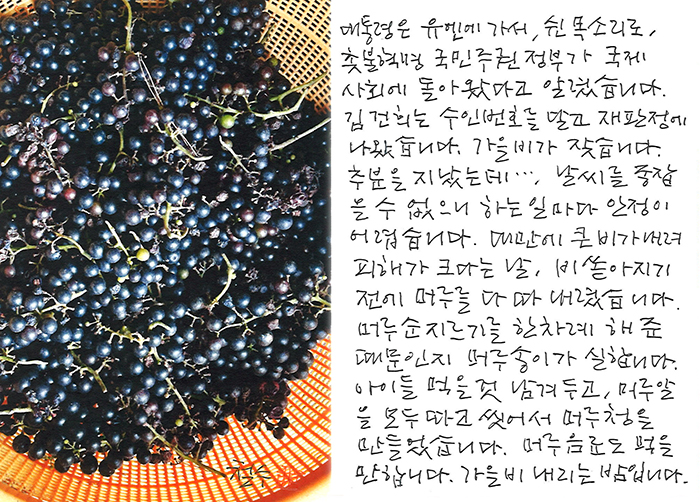 대통령은 유엔에 가서, 쉰 목소리로,
촛불혁명 국민주권정부가 국제
사회에 돌아왔다고 알렸습니다.
김건희는 수인번호를 달고 재판정에
나왔습니다. 가을비가 잦습니다.
추분을 지났는데…, 날씨를 종잡
을 수 없으니 하는일마다 안정이
어렵습니다. 대만에 큰비가내려
피해가 크다는 날, 비 쏟아지기
전에 머루를 다 따 내렸습니다.
머루순지르기를 한차례 해 준
때문인지 머루송이가 실합니다.
아이들 먹을 것 남겨두고, 머루알
을 모두 따고 씻어서 머루청을
만들었습니다. 머루음료도 먹을
만합니다. 가을비 내리는 밤입니다.
철수